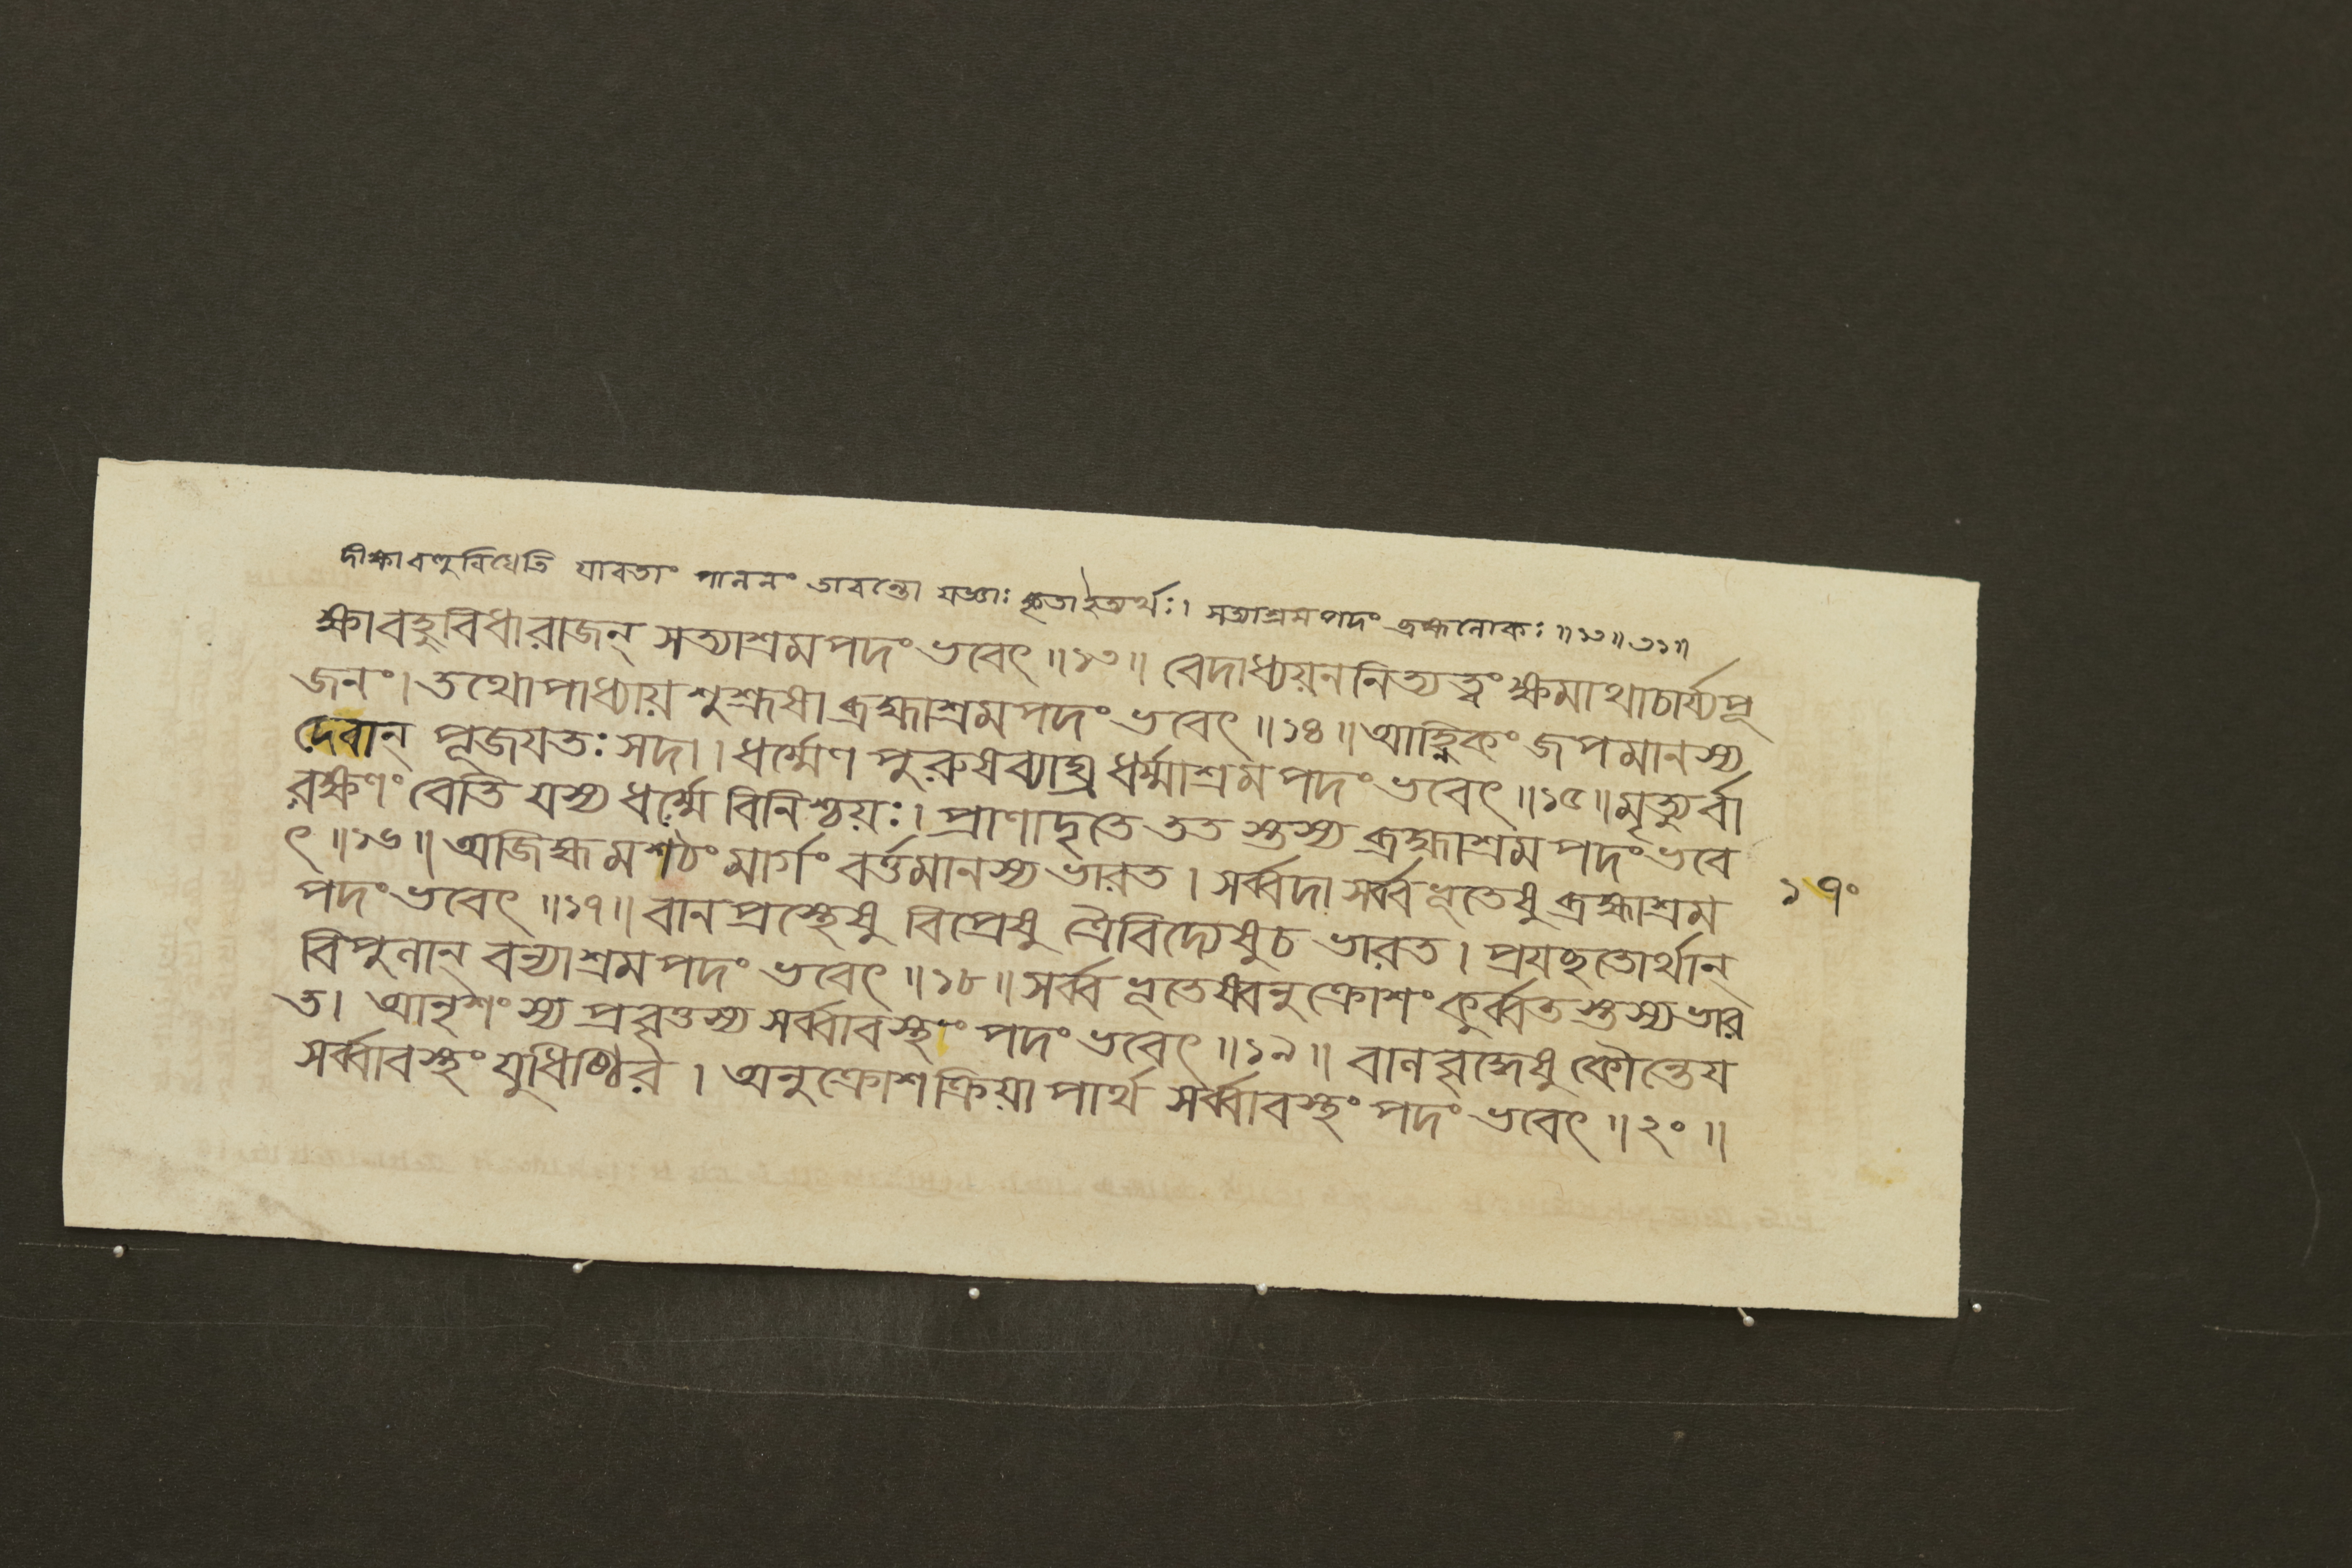 দীক্ষাবহুবিধেতি যাবতাং পালনং তাবন্তো যজ্ঞাঃ কৃতাইত্যর্থঃ। সত্যাশ্রমপদং ব্রহ্মলোকঃ॥১৩॥৩১॥
ক্ষাবহুবিধারাজন্ সত্যাশ্রমপদং ভবেৎ॥১৩॥ বেদাধ্যয়ননিত্যত্বং ক্ষমাথাচার্য্যপূ
জনং। তথোপাধ্যায়শুশ্রূষা ব্রহ্মাশ্রমপদং ভবেৎ॥১৪॥ আহ্নিকং জপমানস্য
দেবান্ পূজযতঃ সদা। ধর্ম্মেণ পুরুষব্যাঘ্র ধর্ম্মাশ্রমপদং ভবেৎ॥১৫॥ মৃত্যুর্বা
রক্ষণং বেতি যস্য ধর্ম্মে বিনিশ্চয়ঃ। প্রাণাদৃতে ততস্তস্য ব্রহ্মাশ্রমপদং ভবে
ৎ॥১৬॥ অজিহ্মমশঠং মার্গং বর্ত্তমানস্য ভারত। সর্ব্বদা সর্ব্বভূতেষু ব্রহ্মাশ্রম
পদং ভবেৎ॥১৭॥ বানপ্রস্থেষু বিপ্রেষু ত্রৈবিদ্যেষুচ ভারত। প্রযচ্ছতোর্থান্
বিপুলান্ বন্যাশ্রমপদং ভবেৎ॥১৮॥ সর্ব্বভূতেষ্বনুক্রোশং কুর্ব্বতস্তস্য ভার
ত। আনৃশংস্যপ্রবৃত্তস্য সর্ব্বাবস্থং পদং ভবেৎ॥১৯॥ বালবৃদ্ধেষু কৌন্তেয
সর্ব্বাবস্থং যুধিষ্ঠির। অনুক্রোশক্রিয়া পার্থ সর্ব্বাবস্থং পদং ভবেৎ॥২০॥
১৭০